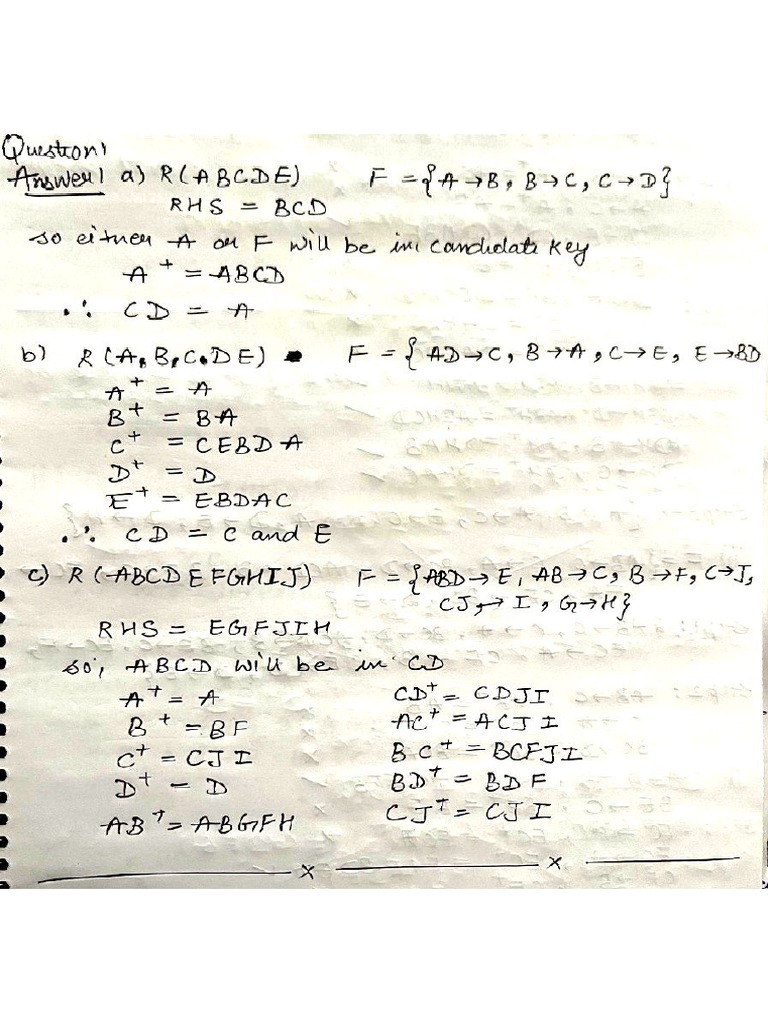 Question 1
Answer 1 a) R(ABCDE) F = {A→B, B→C, C→D}
RHS = BCD
so either A or F will be in candidate key
A⁺ = ABCD
∴ CD = A
b) R(A, B, C, DE) F = { AD→C, B→A, C→E, E→BD
A⁺ = A
B⁺ = BA
C⁺ = CEBDA
D⁺ = D
E⁺ = EBDAC
∴ CD = C and E
c) R(ABCDEFGHIJ) F = {ABD→E, AB→C, B→F, C→J,
CJ→I, G→H}
RHS = EGFJIH
so, ABCD will be in CD
A⁺ = A CD⁺ = CDJI
B⁺ = BF AC⁺ = ACJI
C⁺ = CJI BC⁺ = BCFJI
D⁺ = D BD⁺ = BDF
AB⁺ = ABGFH CJ⁺ = CJI
x x